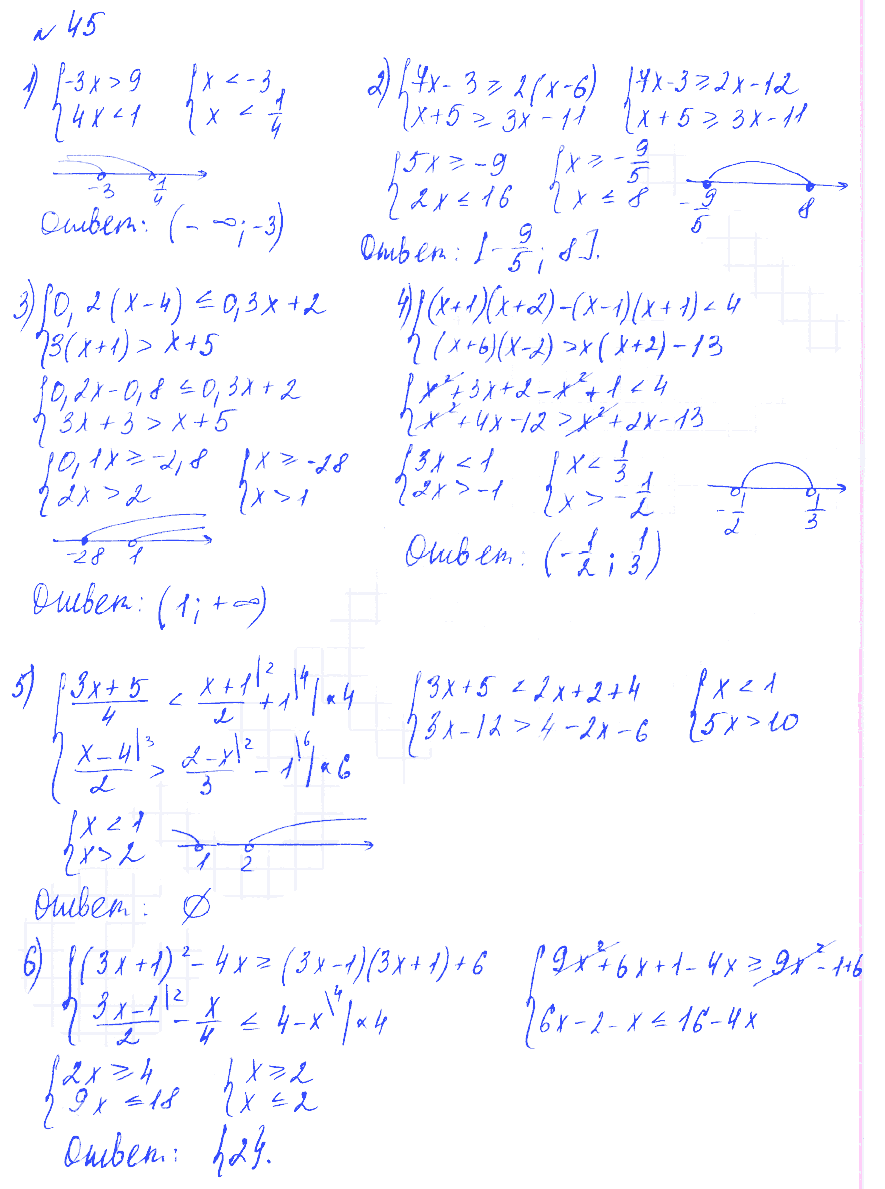 №45
1) { -3x > 9   { x < -3
{ 4x < 1   { x < 1/4
-3   1/4
Ответ: (-∞; -3)
2) { 7x - 3 ≥ 2(x-6)   { 7x-3 ≥ 2x-12
{ x+5 ≥ 3x-11   { x+5 ≥ 3x-11
{ 5x ≥ -9   { x ≥ -9/5
{ 2x ≤ 16   { x ≤ 8
-9/5   8
Ответ: [-9/5; 8].
3) { 0,2(x-4) ≤ 0,3x+2
{ 3(x+1) > x+5
{ 0,2x-0,8 ≤ 0,3x+2
{ 3x+3 > x+5
{ 0,1x ≥ -2,8   { x ≥ -28
{ 2x > 2   { x > 1
-28   1
Ответ: (1; +∞)
4) { (x+1)(x+2)-(x-1)(x+1) < 4
{ (x+6)(x-2) > x(x+2)-13
{ x²+3x+2-x²+1 < 4
{ x²+4x-12 > x²+2x-13
{ 3x < 1   { x < 1/3
{ 2x > -1   { x > -1/2
-1/2   1/3
Ответ: (-1/2; 1/3)
5) { (3x+5)/4 < (x+1)/2 \2 + 1 \4 | ×4   { 3x+5 < 2x+2+4   { x < 1
{ (x-4)/2 \3 > (2-x)/3 \2 - 1 \6 | ×6   { 3x-12 > 4-2x-6   { 5x > 10
{ x < 1
{ x > 2
1   2
Ответ: ∅
6) { (3x+1)² - 4x ≥ (3x-1)(3x+1)+6   { 9x²+6x+1-4x ≥ 9x²-1+6
{ (3x-1)/2 \2 - x/4 ≤ 4-x \4 | ×4   { 6x-2-x ≤ 16-4x
{ 2x ≥ 4   { x ≥ 2
{ 9x ≤ 18   { x ≤ 2
Ответ: {2}.